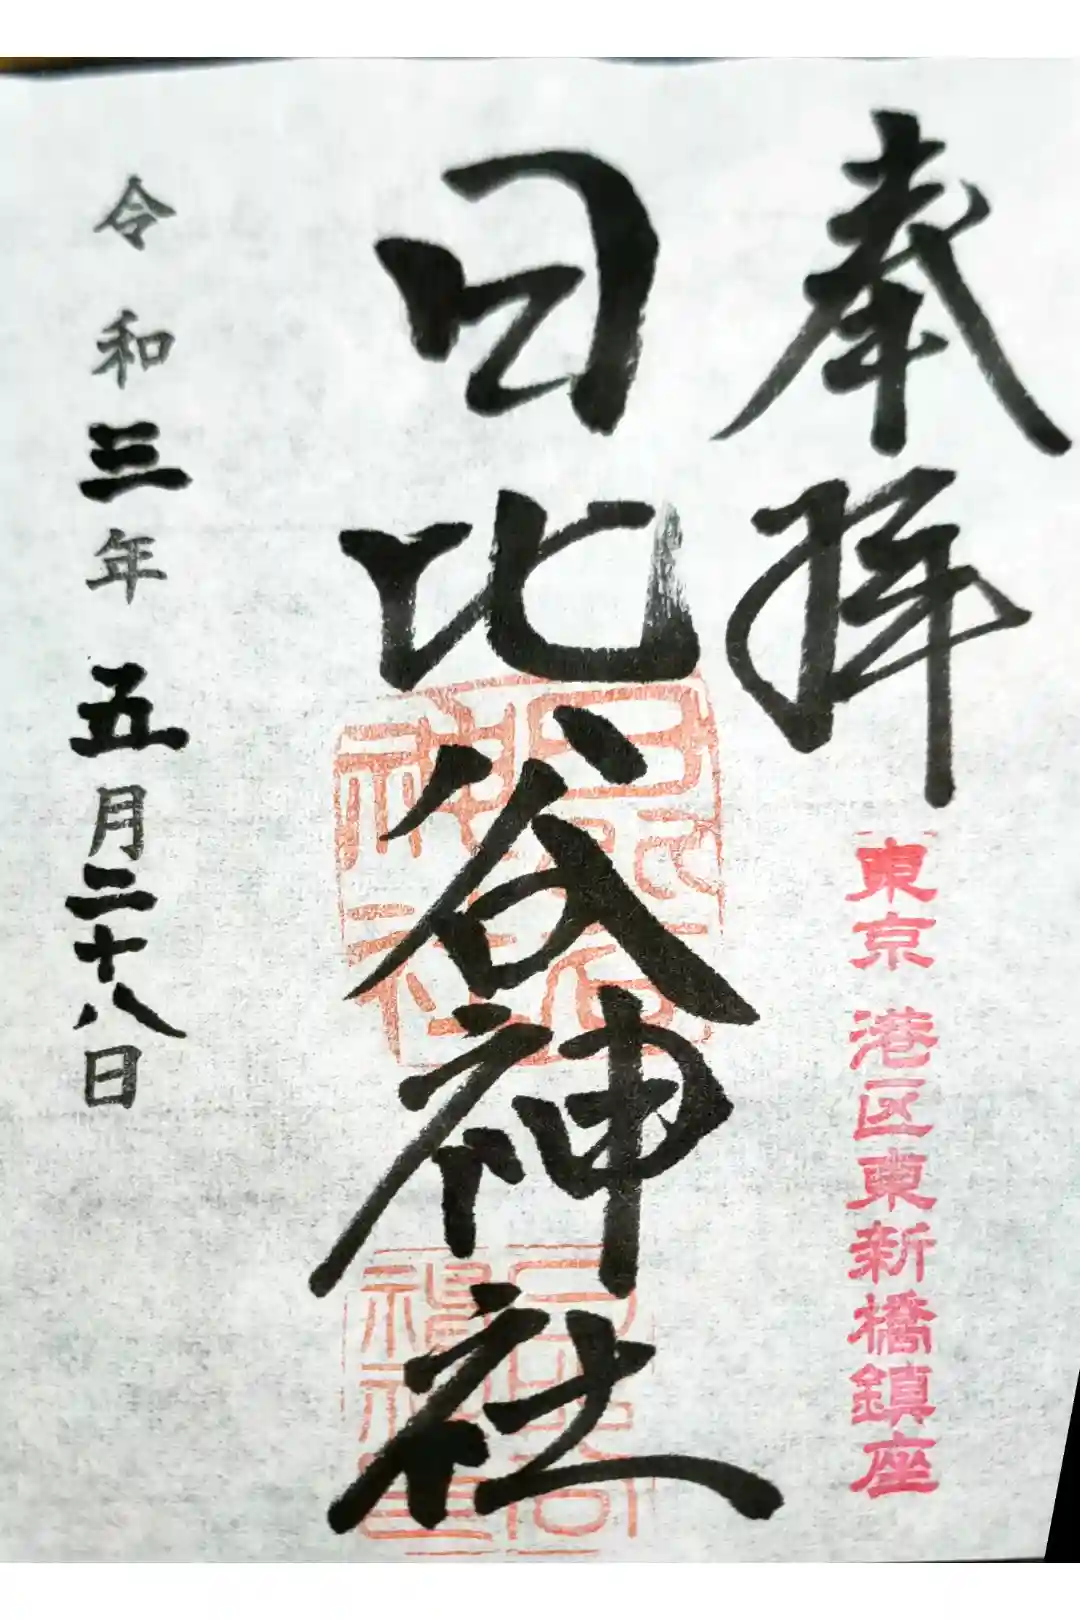 奉拝
東京 港区東新橋鎮座
日比谷神社
令和三年五月二十八日